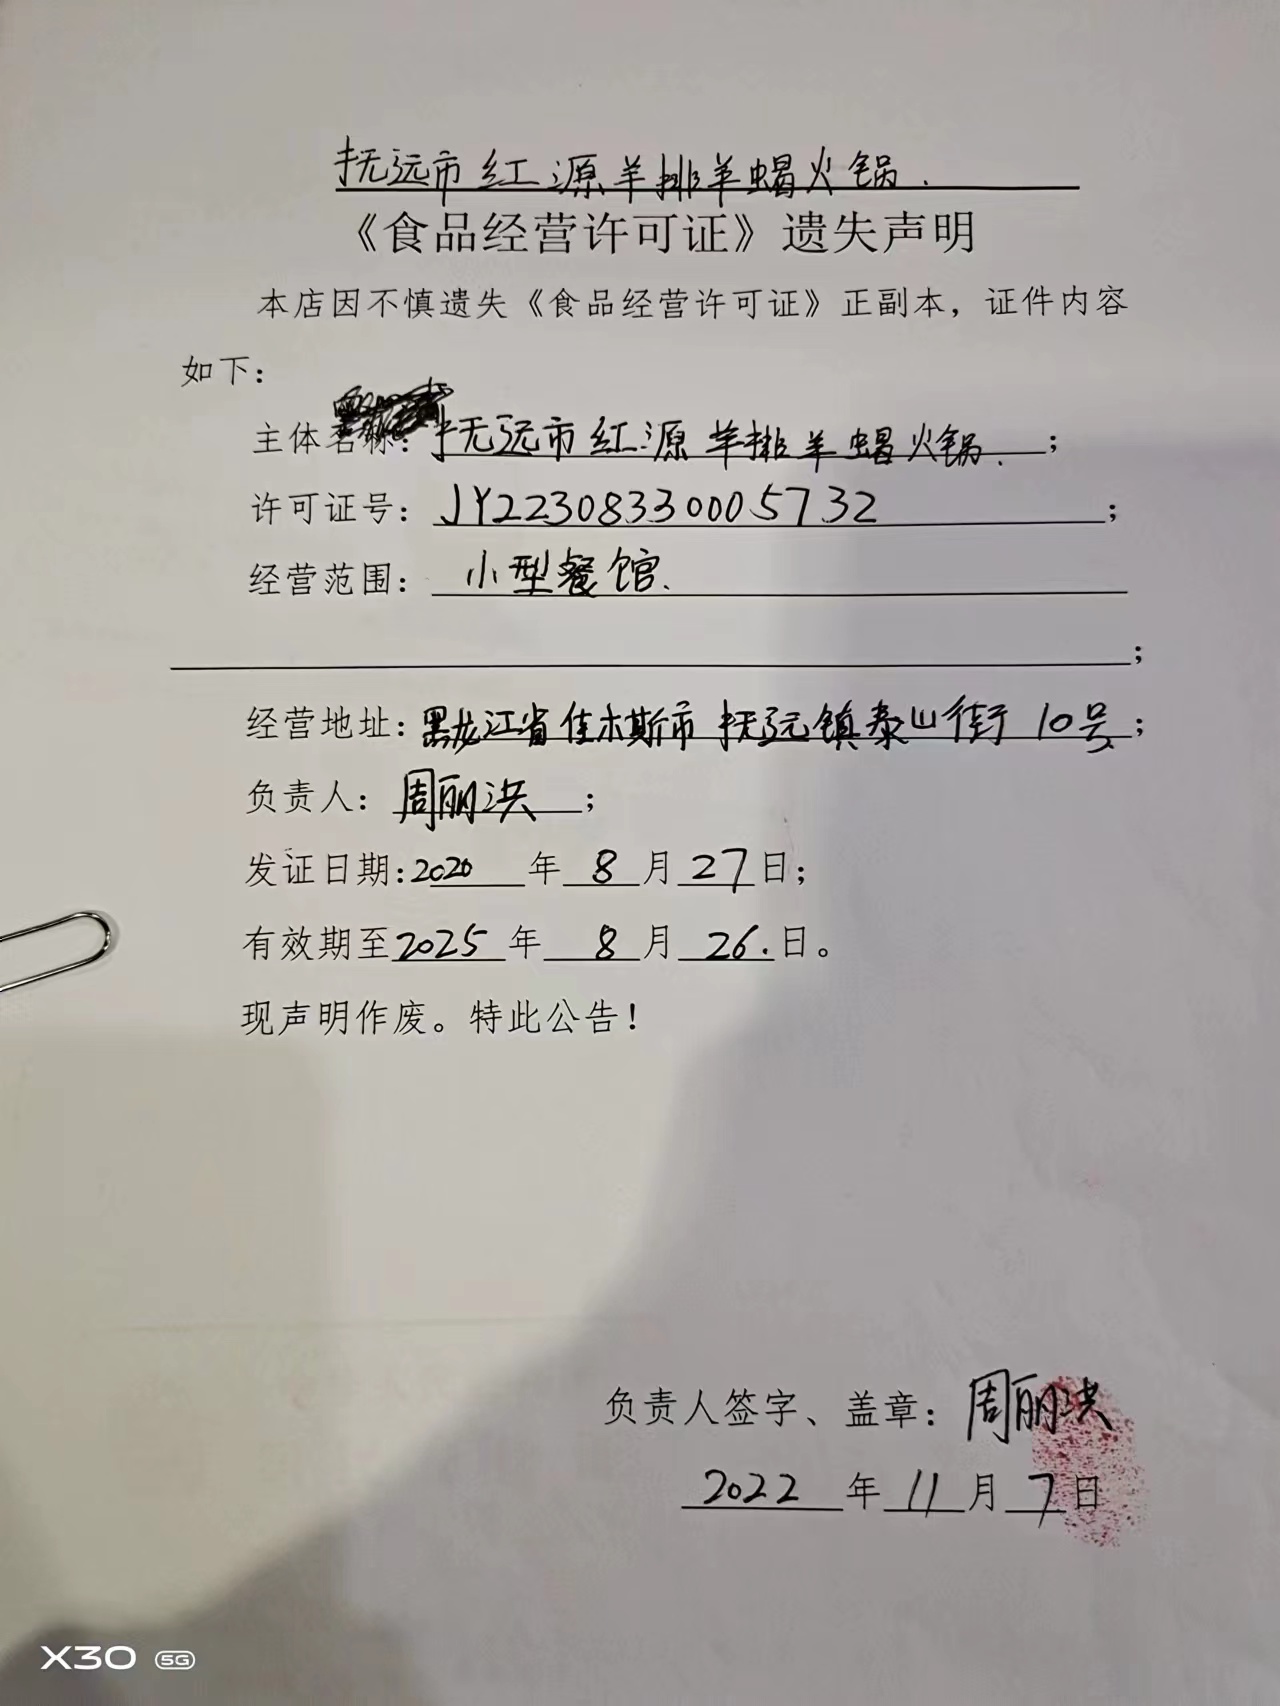 抚远市红源羊排羊蝎火锅.
《食品经营许可证》遗失声明
本店因不慎遗失《食品经营许可证》正副本，证件内容
如下：
主体名称：抚远市红源羊排羊蝎火锅.；
许可证号：JY22308330005732；
经营范围：小型餐馆.
；
经营地址：黑龙江省佳木斯市抚远镇泰山街10号；
负责人：周丽洪；
发证日期：2020年8月27日；
有效期至2025年8月26.日。
现声明作废。特此公告！
负责人签字、盖章：周丽洪
2022年11月7日
X30 5G